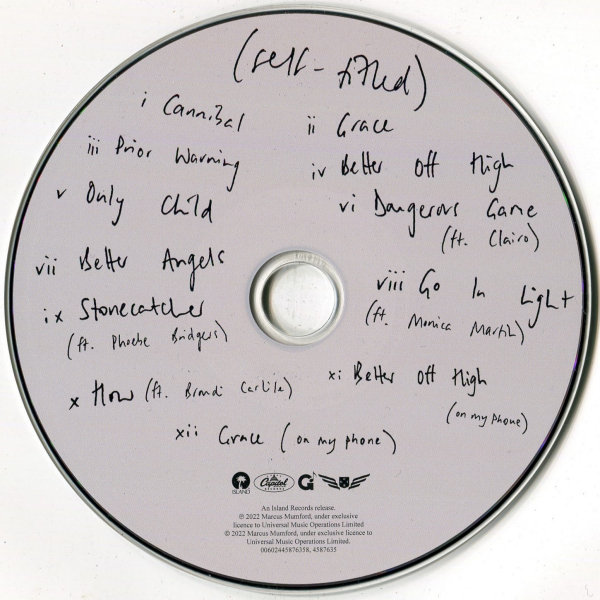 (self-titled)
i Cannibal
ii Grace
iii Prior Warning
iv Better Off High
v Only Child
vi Dangerous Game
(ft. Clairo)
vii Better Angels
viii Go In Light
(ft. Monica Martin)
ix Stonecatcher
(ft. Phoebe Bridgers)
x How (ft. Brandi Carlile)
xi Better Off High
(on my phone)
xii Grace (on my phone)
ISLAND
Capitol
RECORDS
G
An Island Records release.
℗ 2022 Marcus Mumford, under exclusive
licence to Universal Music Operations Limited
© 2022 Marcus Mumford, under exclusive licence to
Universal Music Operations Limited.
00602445876358, 4587635